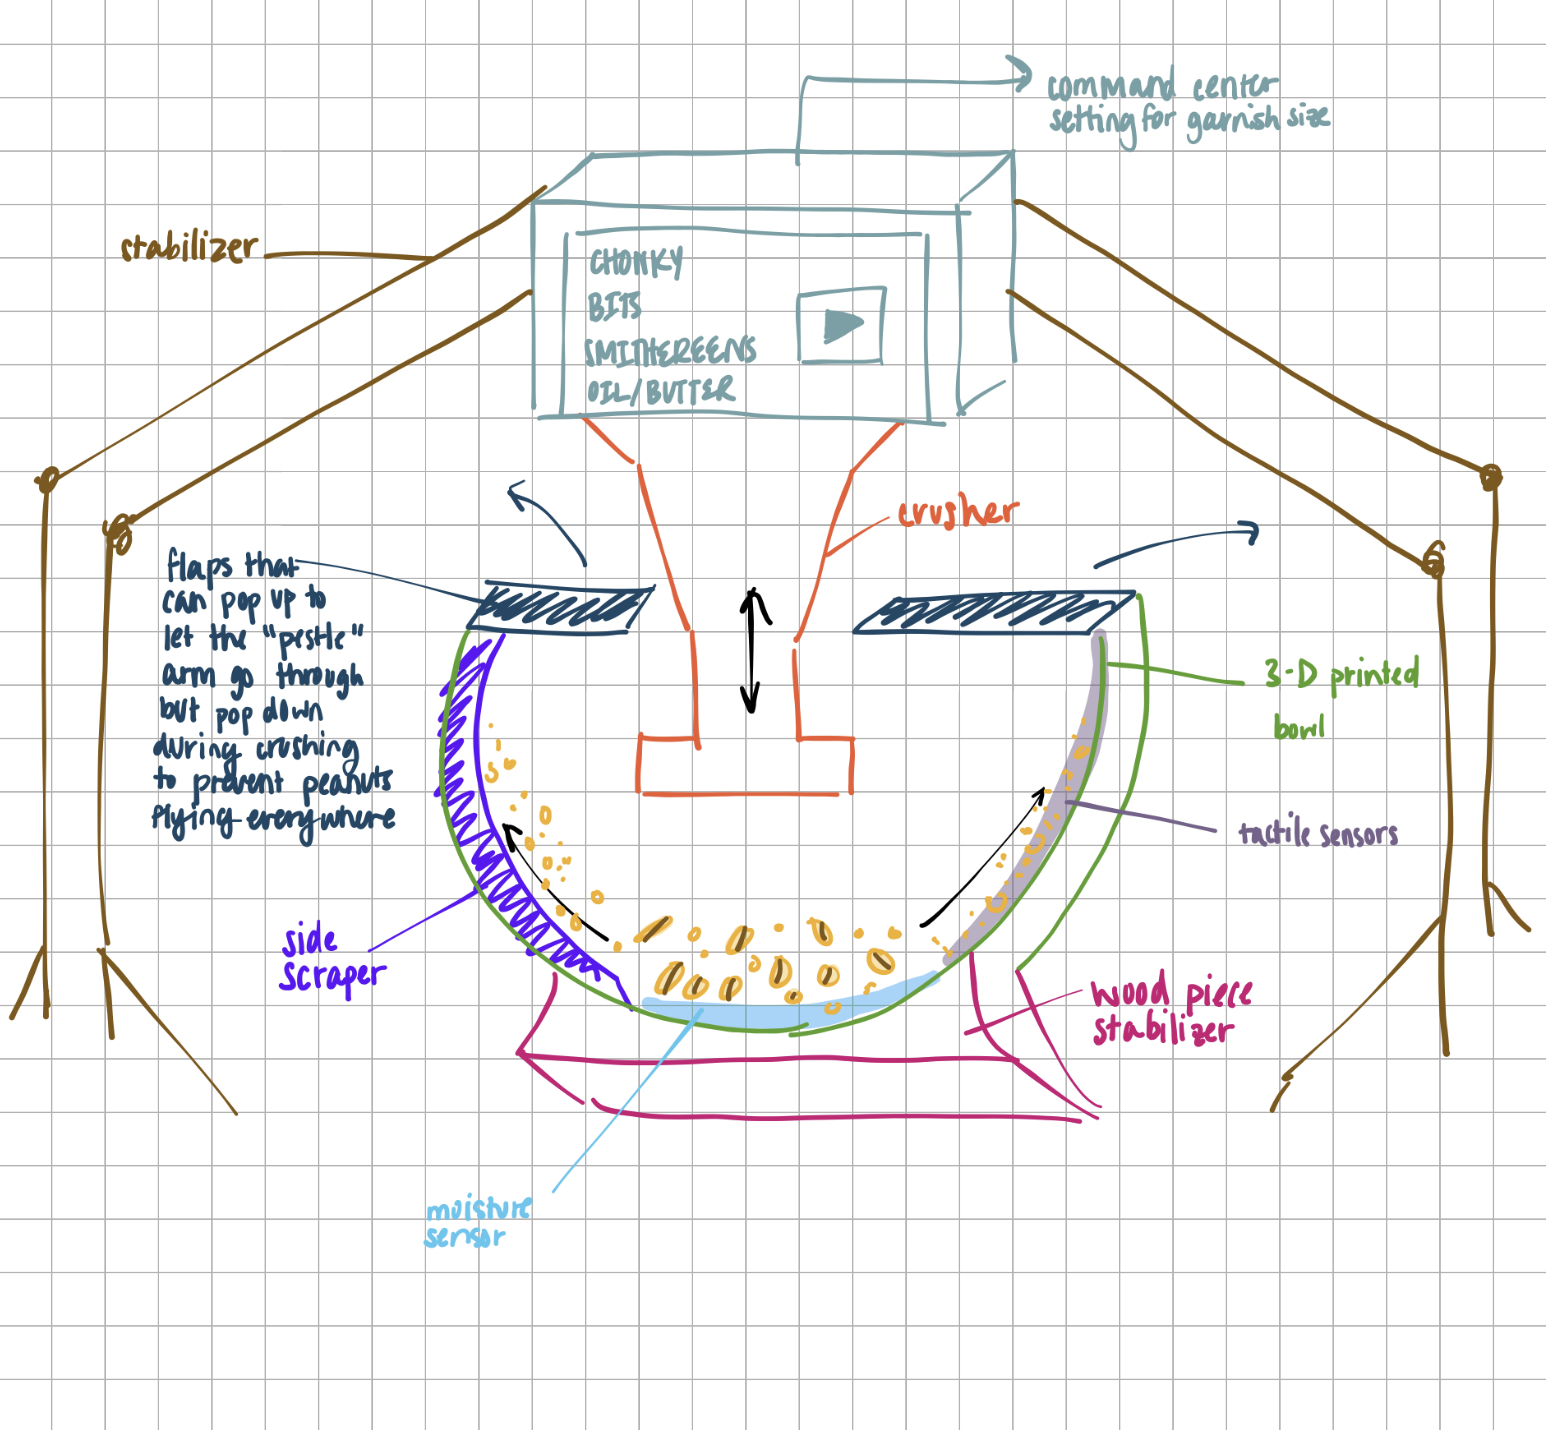 command center
setting for garnish size
stabilizer
CHONKY
BITS
SMINTEREENS
OIL/BUTTER
crusher
flaps that
can pop up to
let the "pestle"
arm go through
but pop down
during crushing
to prevent peanuts
flying everywhere
3-D printed
bowl
tactile sensors
side
scraper
wood piece
stabilizer
moisture
sensor